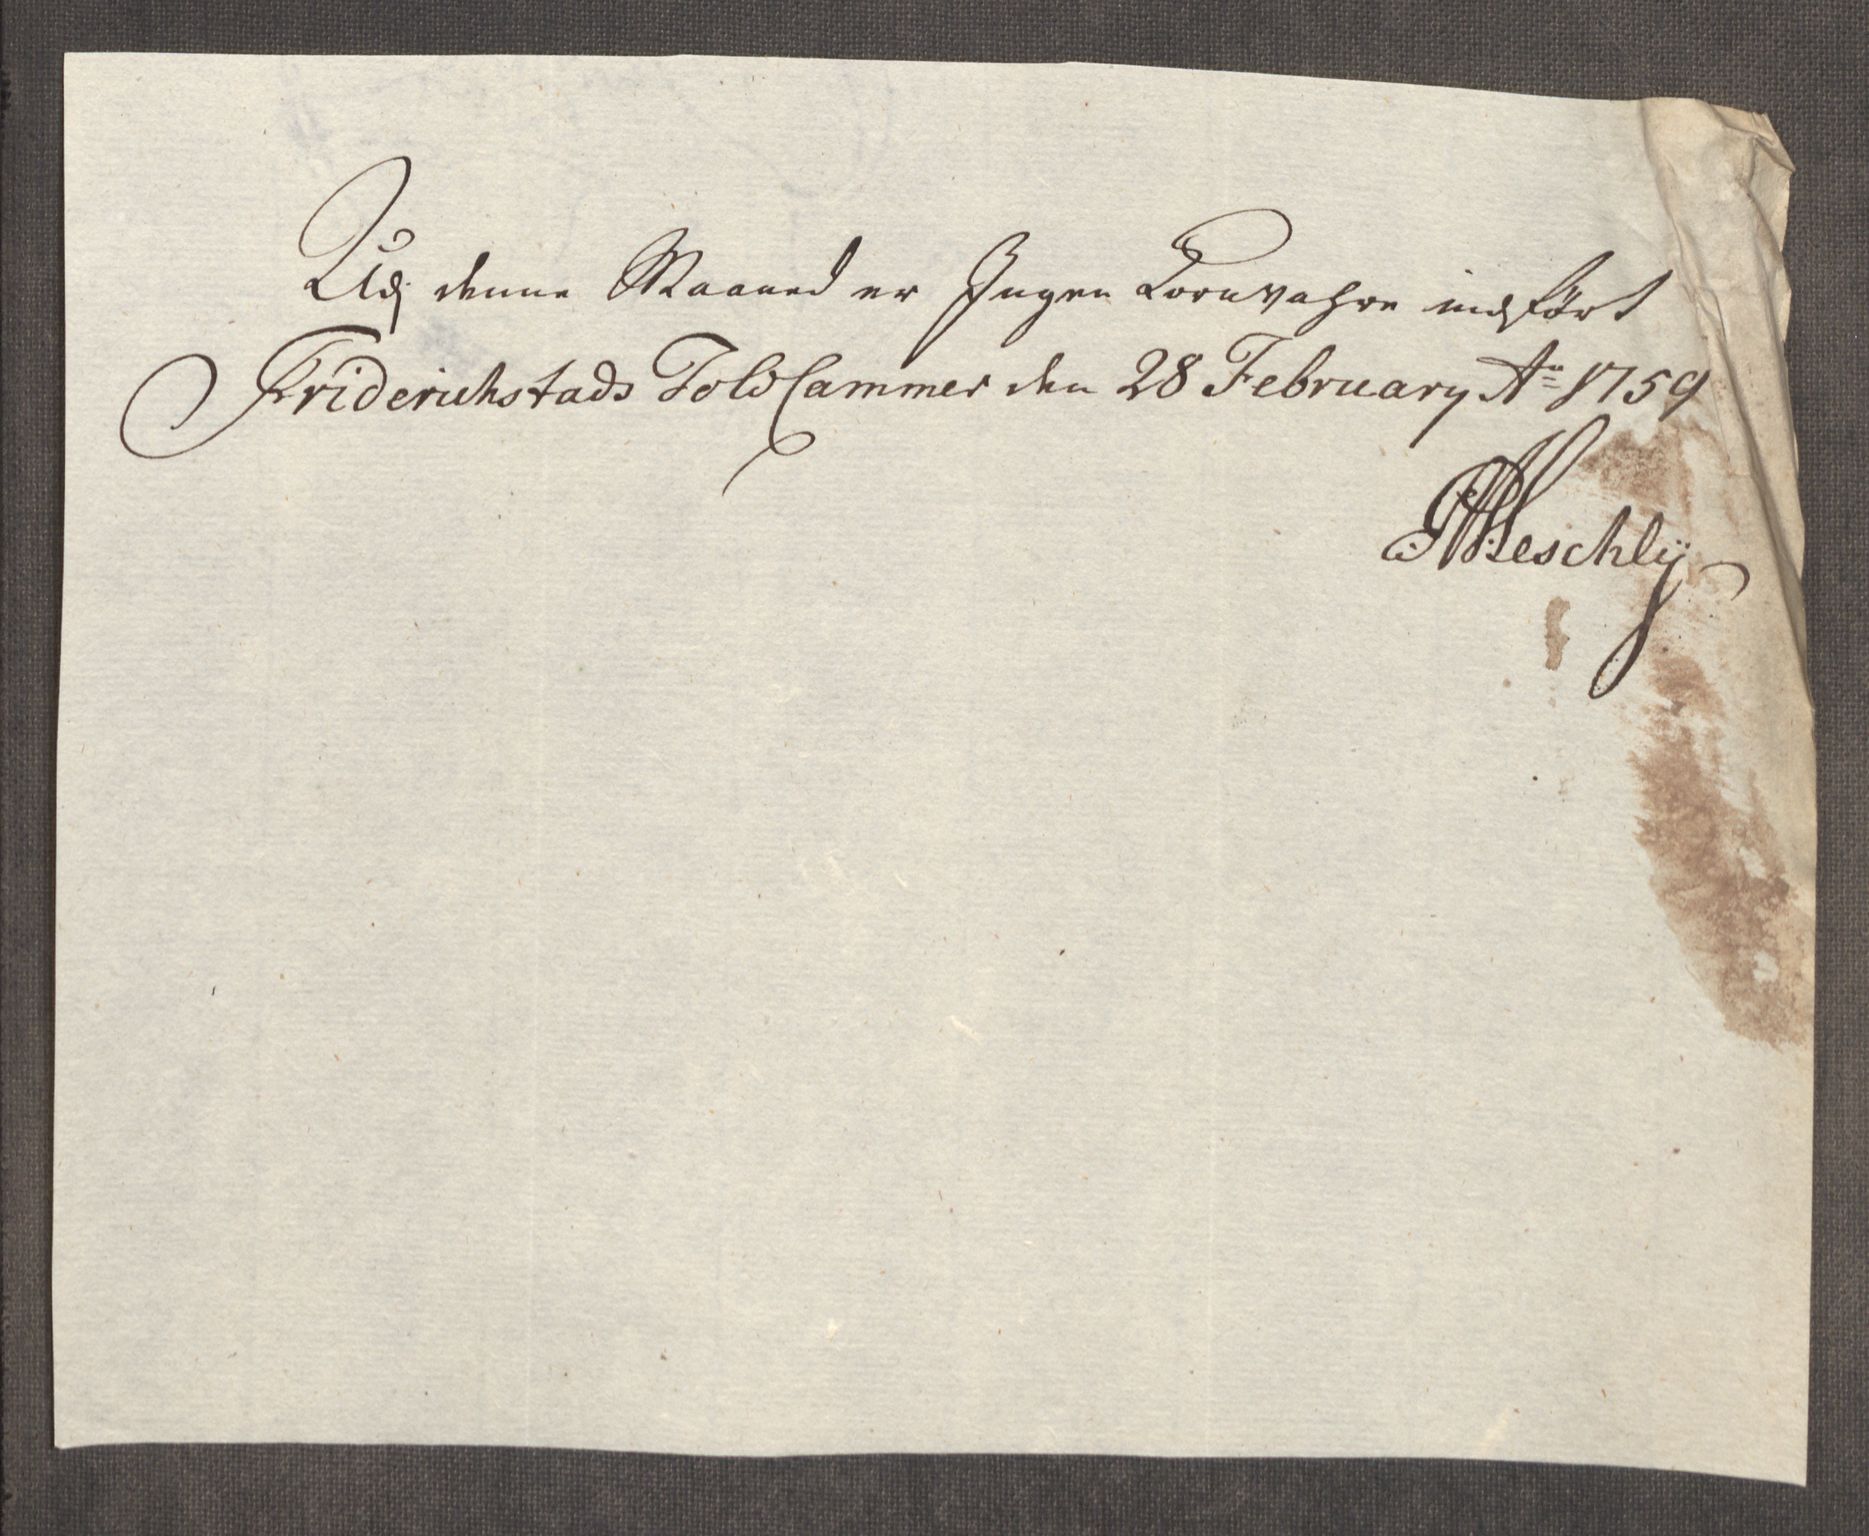 Udj denne Maaned er Ingen Kornvahre indført
Friderichstads Told Cammer den 28 February Ao 1759